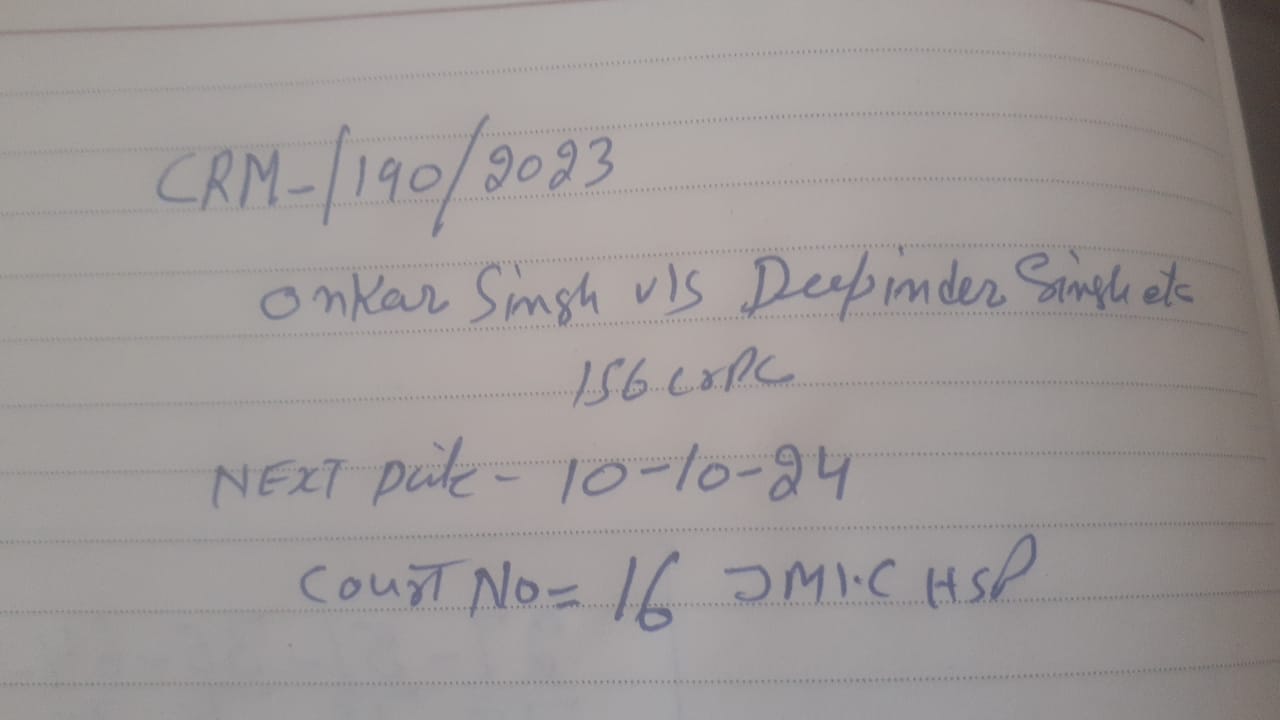 CRM-/190/2023
Onkar Singh v/s Deepinder Singh etc
156 CrPC
NEXT Date - 10-10-24
Court No = 16 JMI.C HSP